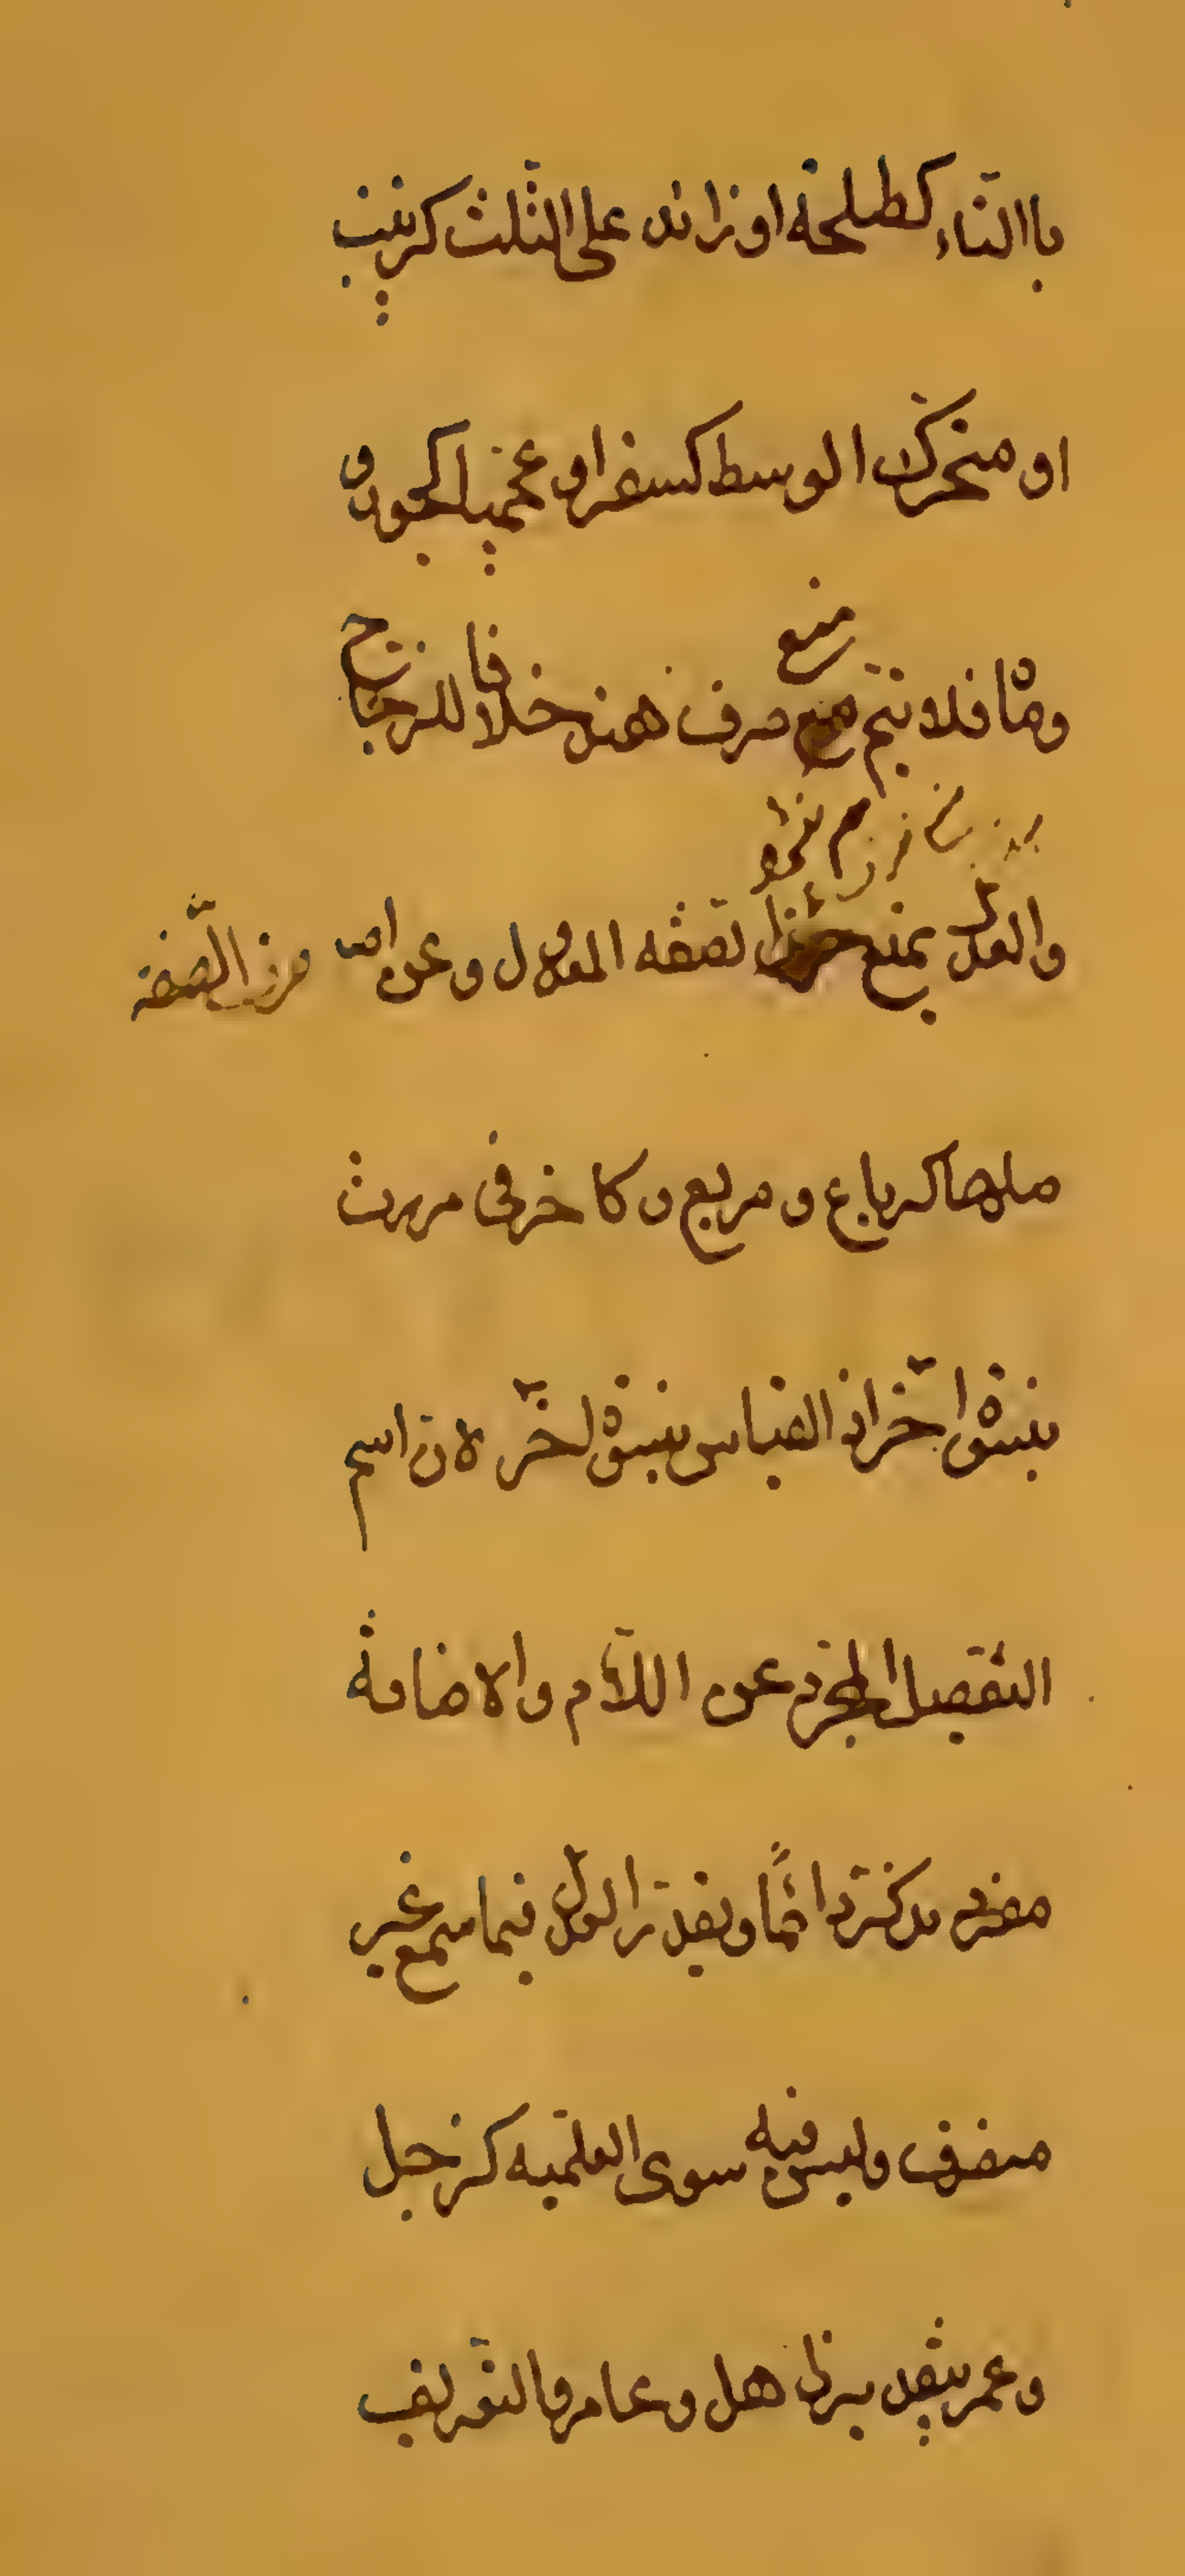 باالتاء كطلحة او زائد على الثلث كزينب
او متحرك الوسط كسقر او عجميا كجور و
ماة فلا يتحتم منع صرف هند خلافا للزجاج
والعدل يمنع صرف الصفة المعدول وعن اصـ من الصفة
ملها كرباع و مربع و كاخر فى مررت
بنسوة اخر اذ القياس بنسوة اخر لان اسم
التفضيل المجرد عن اللام والاضافة
مفرد مذكر دائما ويقدر العدل فيما سمع غير
منصرف وليس فيه سوى العلمية كزحل
وعمر بتقدير زاهل وعامر والتعريف